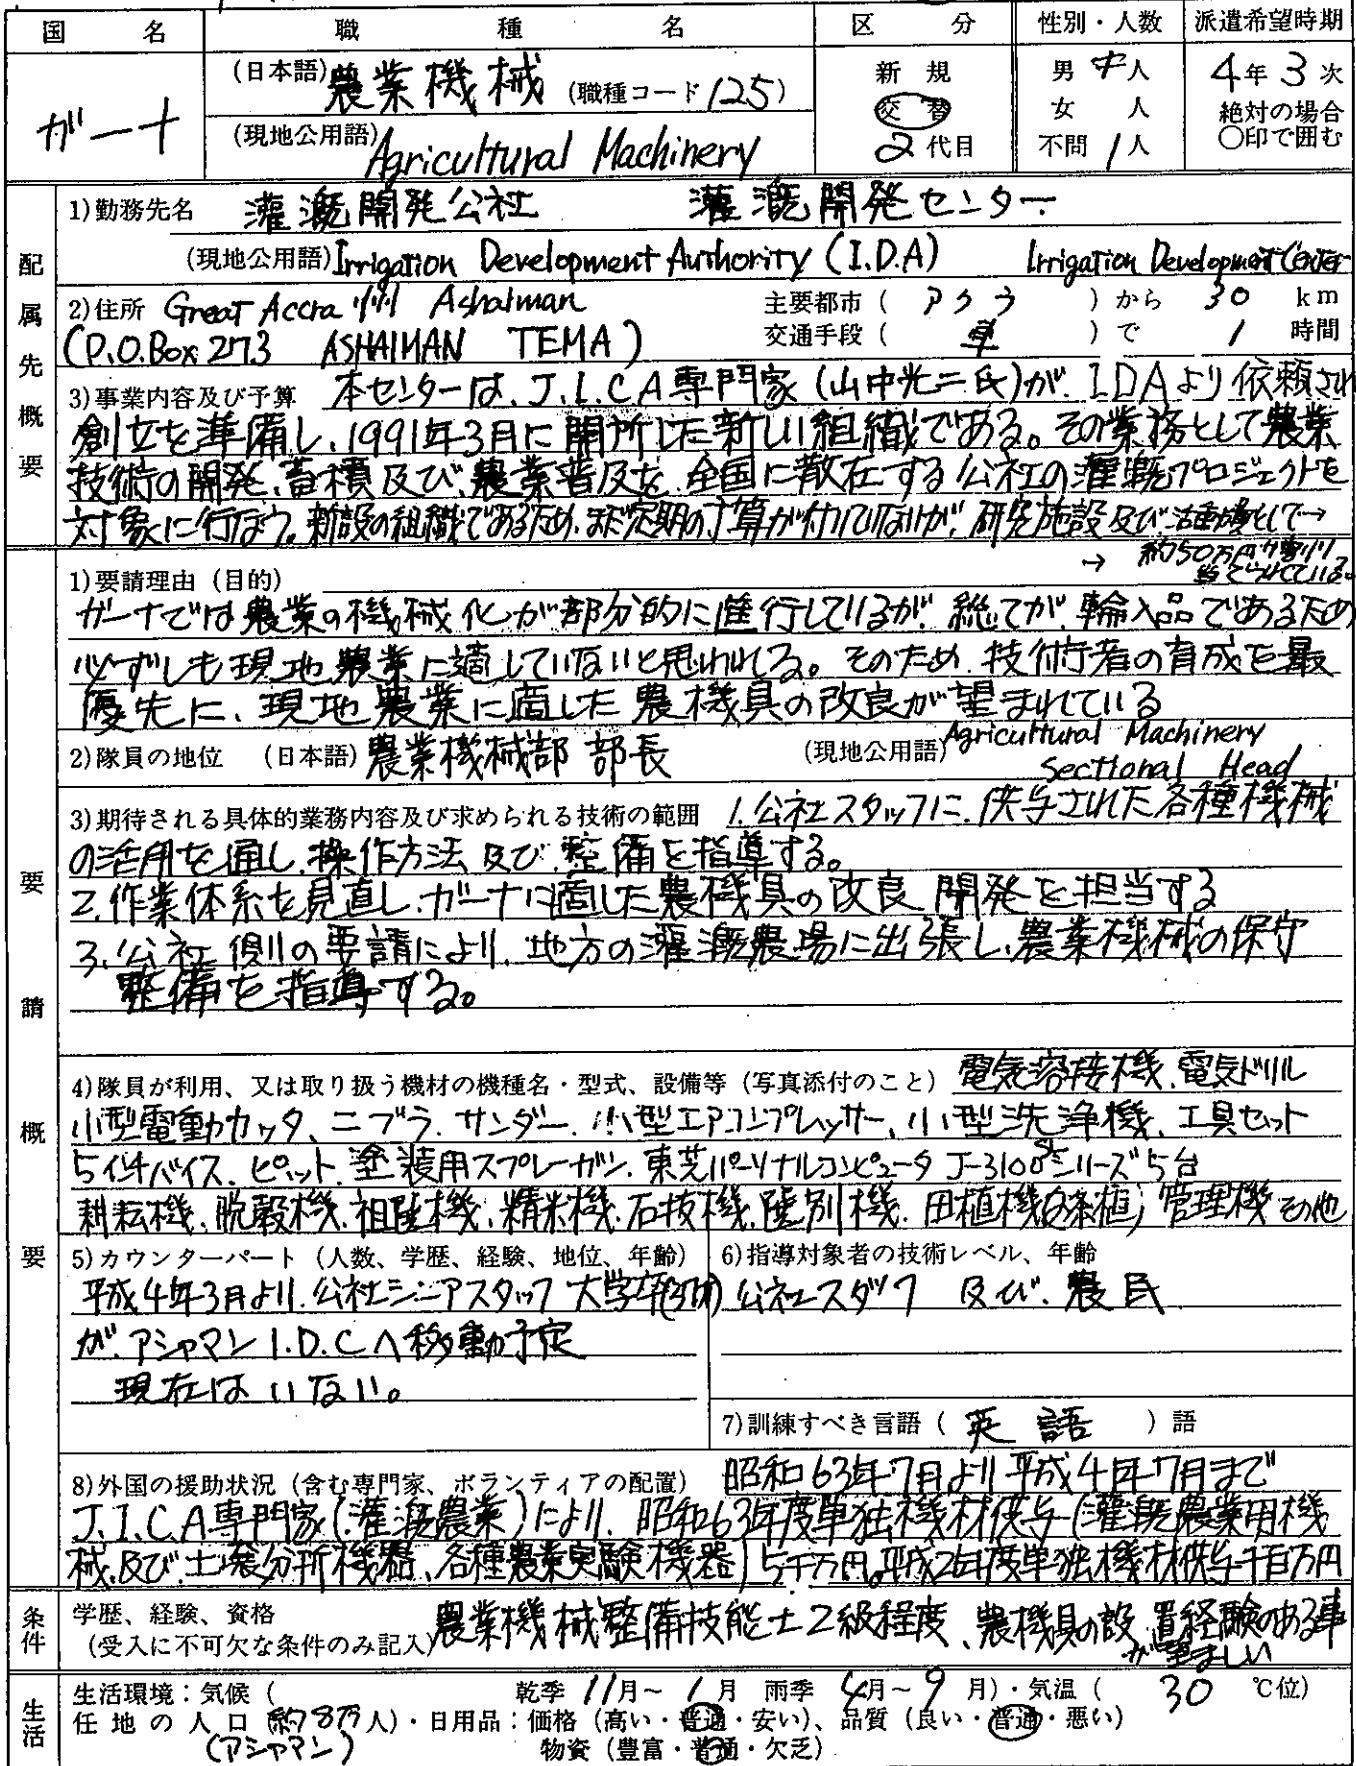 国 名 職 種 名 区 分 性別・人数 派遣希望時期
ガーナ
(日本語) 農業機械 (職種コード 125)
(現地公用語) Agricultural Machinery
新 規
交 替
2 代目
男 人
女 人
不問 1 人
4 年 3 次
絶対の場合
○印で囲む
配属先概要
1)勤務先名 灌漑開発公社 灌漑開発センター
(現地公用語) Irrigation Development Authority (I.D.A) Irrigation Development Center
2)住所 Great Accra 州 Ashaiman 主要都市 ( アクラ ) から 30 km
(P.O.Box 273 ASHAIMAN TEMA) 交通手段 ( 車 ) で 1 時間
3)事業内容及び予算 本センターは、J.I.C.A専門家(山中光二氏)が、IDAより依頼され
創立を準備し、1991年3月に開所した新しい組織である。その業務として農業
技術の開発、畜積及び、農業普及を、全国に散在する公社の灌漑プロジェクトを
対象に行なう。新設の組織であるため、まだ定期の予算が付いていないが、研究施設及び活動費として→
→ 約50万円が割り
当てられている。
要請概要
1)要請理由 (目的)
ガーナでは農業の機械化が部分的に進行しているが、総てが、輸入品であるため
必ずしも現地農業に適していないと思われる。そのため、技術者の育成を最
優先に、現地農業に適した農機具の改良が望まれている
2)隊員の地位 (日本語) 農業機械部 部長 (現地公用語) Agricultural Machinery
Sectional Head
3)期待される具体的業務内容及び求められる技術の範囲 1.公社スタッフに、供与された各種機械
の活用を通し、操作方法及び、整備を指導する。
2.作業体系を見直し、ガーナに適した農機具の改良 開発を担当する
3.公社側の要請により、地方の灌漑農場に出張し、農業機械の保守
整備を指導する。
4)隊員が利用、又は取り扱う機材の機種名・型式、設備等 (写真添付のこと) 電気溶接機、電気ドリル
小型電動カッタ、ニブラ、サンダー、小型エアコンプレッサー、小型洗浄機、工具セット
5インチバイス、ピット、塗装用スプレーガン、東芝パーソナルコンピュータ J-3100シリーズ5台
耕耘機、脱穀機、籾摺機、精米機、石抜機、選別機、田植機 管理機 その他
5)カウンターパート (人数、学歴、経験、地位、年齢)
平成4年3月より、公社シニアスタッフ 大学卒
が、アシャマン I.D.Cへ移動予定
現在はいない。
6)指導対象者の技術レベル、年齢
公社スタッフ 及び、農民
7)訓練すべき言語 ( 英語 ) 語
8)外国の援助状況 (含む専門家、ボランティアの配置) 昭和63年7月より平成4年7月まで
J.I.C.A専門家(灌漑農業)により、昭和63年度単独機材供与(灌漑農業用機
械、及び土壌分析機器、各種農業実験機器)5千万円。平成2年度単独機材供与千百万円
条件
学歴、経験、資格
(受入に不可欠な条件のみ記入) 農業機械整備技能士2級程度、農機具の設置経験のある事
が望ましい
生活
生活環境：気候 ( 乾季 11月～ 1月 雨季 4月～ 9月)・気温 ( 30 ℃位)
任地の人口 (約8万人)・日用品：価格 (高い・普通・安い)、品質 (良い・普通・悪い)
(アシャマン) 物資 (豊富・普通・欠乏)